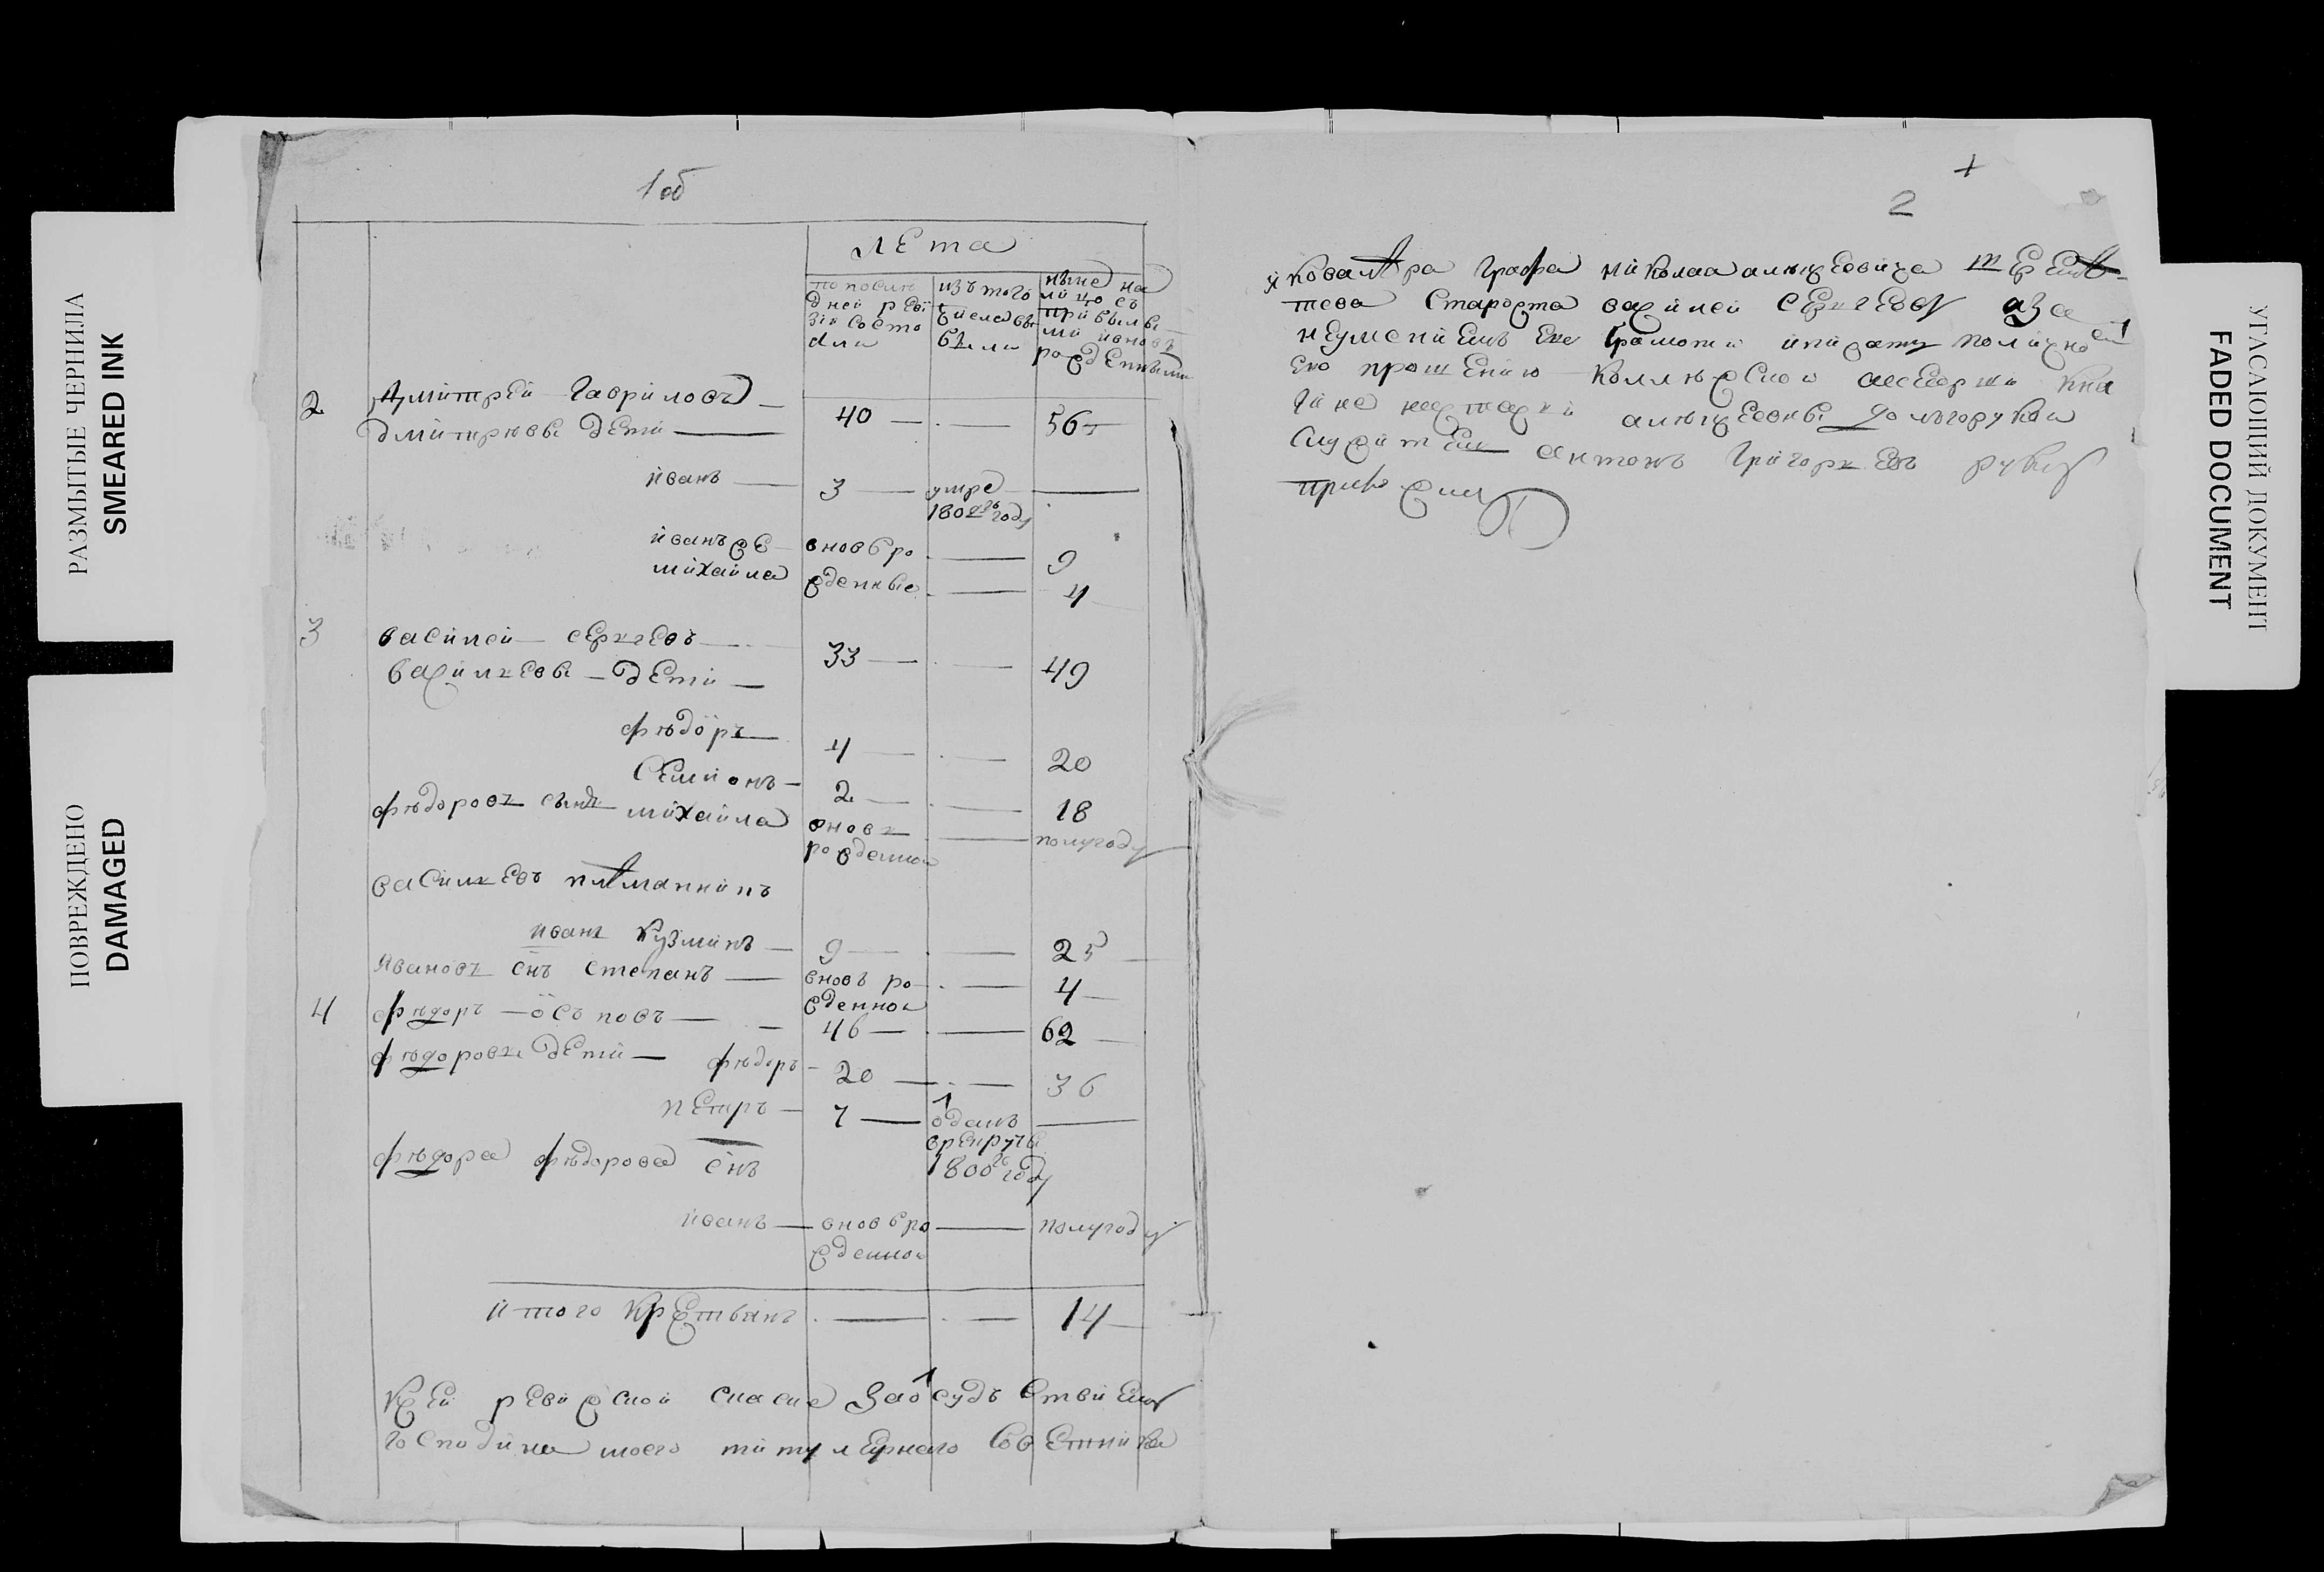 РАЗМЫТЫЕ ЧЕРНИЛА
SMEARED INK
ПОВРЕЖДЕНО
DAMAGED
1 об
лета
по послѣ
дней реви
зіи состо
яли
изъ того
числа вы
были
ныне на
лицо съ
прибылы
ми и вновь
рожденными
2 Дмитрей Гавриловъ 40 56
дмитрѣвы дети
иванъ 3 умре
1802го году
иванъ же вновь ро 9
михайла жденные 4
3 василей сергеевъ 33 49
васильевы дети
фѣдоръ 4 20
Семионъ 2 18
фѣдоровъ сынъ михайла вновь полугоду
рожденной
васильевъ племянникъ
иванъ кузминъ 9 25
ивановъ снъ степанъ вновь ро 4
жденной
4 фѣдоръ осиповъ 46 62
фѣдоровы дети фѣдоръ 20 36
петръ 7 отданъ
в рекруты
1800го году
фѣдора фѣдорова снъ
иванъ вновь ро полугоду
жденной
итого крестьянъ 14
К сей ревизской скаске за отсудъствием
господина моего титулярнаго советника
+
2
и ковалера графа николая алексеевича
староста василей сергеевъ а за
неумениемъ ево грамоти и писать по личному
ево прошению коллежской асессорши кня
гине настасьи алексеевны долъгорукой
служитель антонъ григорьевъ руку
приложилъ
УГАСАЮЩИЙ ДОКУМЕНТ
FADED DOCUMENT